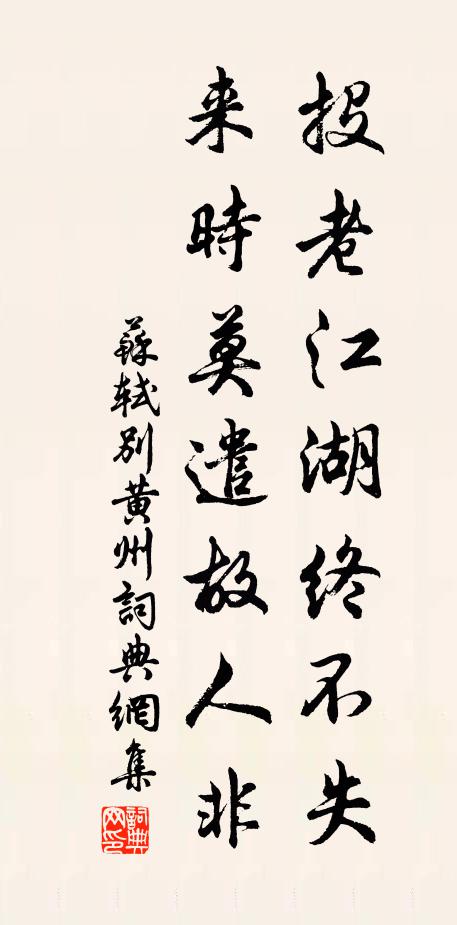 投老江湖終不失
来時莫遣故人非
蘇軾別黄州詞典網集
詞典網印